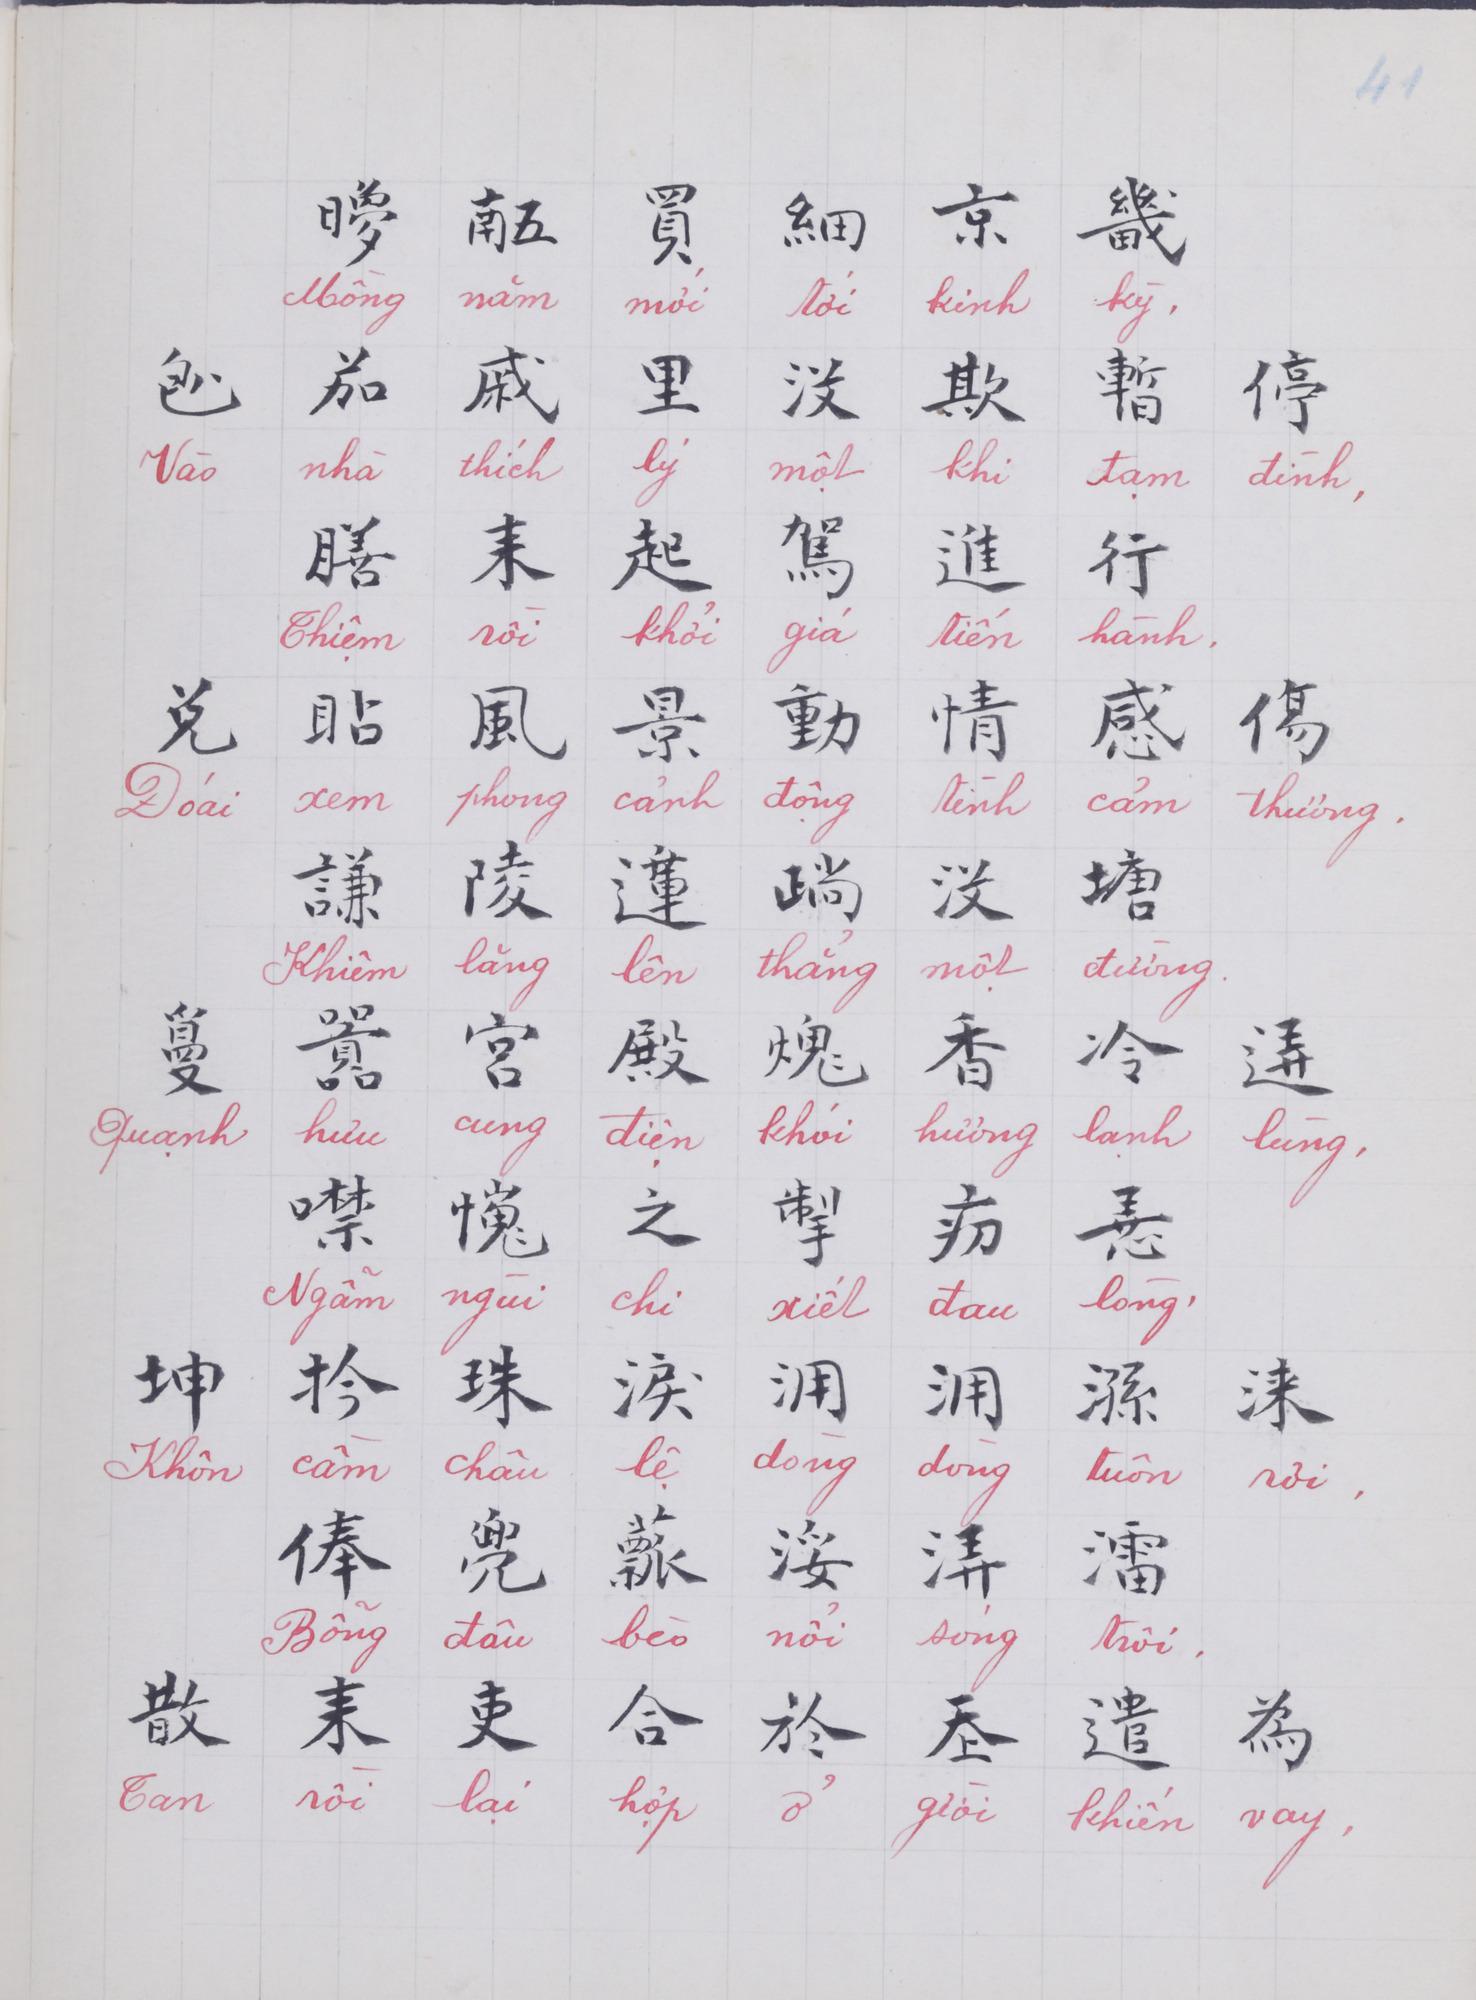 41
曚𠄼買細京畿
Mồng năm mới tới kinh kỳ,
𠓨茄戚里没欺暫停
Vào nhà thích lý một khi tạm đình,
膳耒起駕進行
Thiệm rồi khởi giá tiến hành.
兌貼風景動情感傷
Đoái xem phong cảnh động tình cảm thương.
謙陵𨖲𨀊没塘
Khiêm lăng lên thẳng một đường.
囂宮殿塊香冷逩
Quạnh hưu cung điện khói hương lạnh lùng,
噤𢠐之掣疠𢚸
Ngẫm ngùi chi xiết đau lòng,
坤扲珠淚湧湧㵋淶
Khôn cầm châu lệ dòng dòng tuôn rơi,
俸兜浽㳥㵢
Bỗng đâu bèo nổi sóng trôi.
散耒吏合於𡗶遣為
Tan rồi lại hợp ở giời khiến vay,